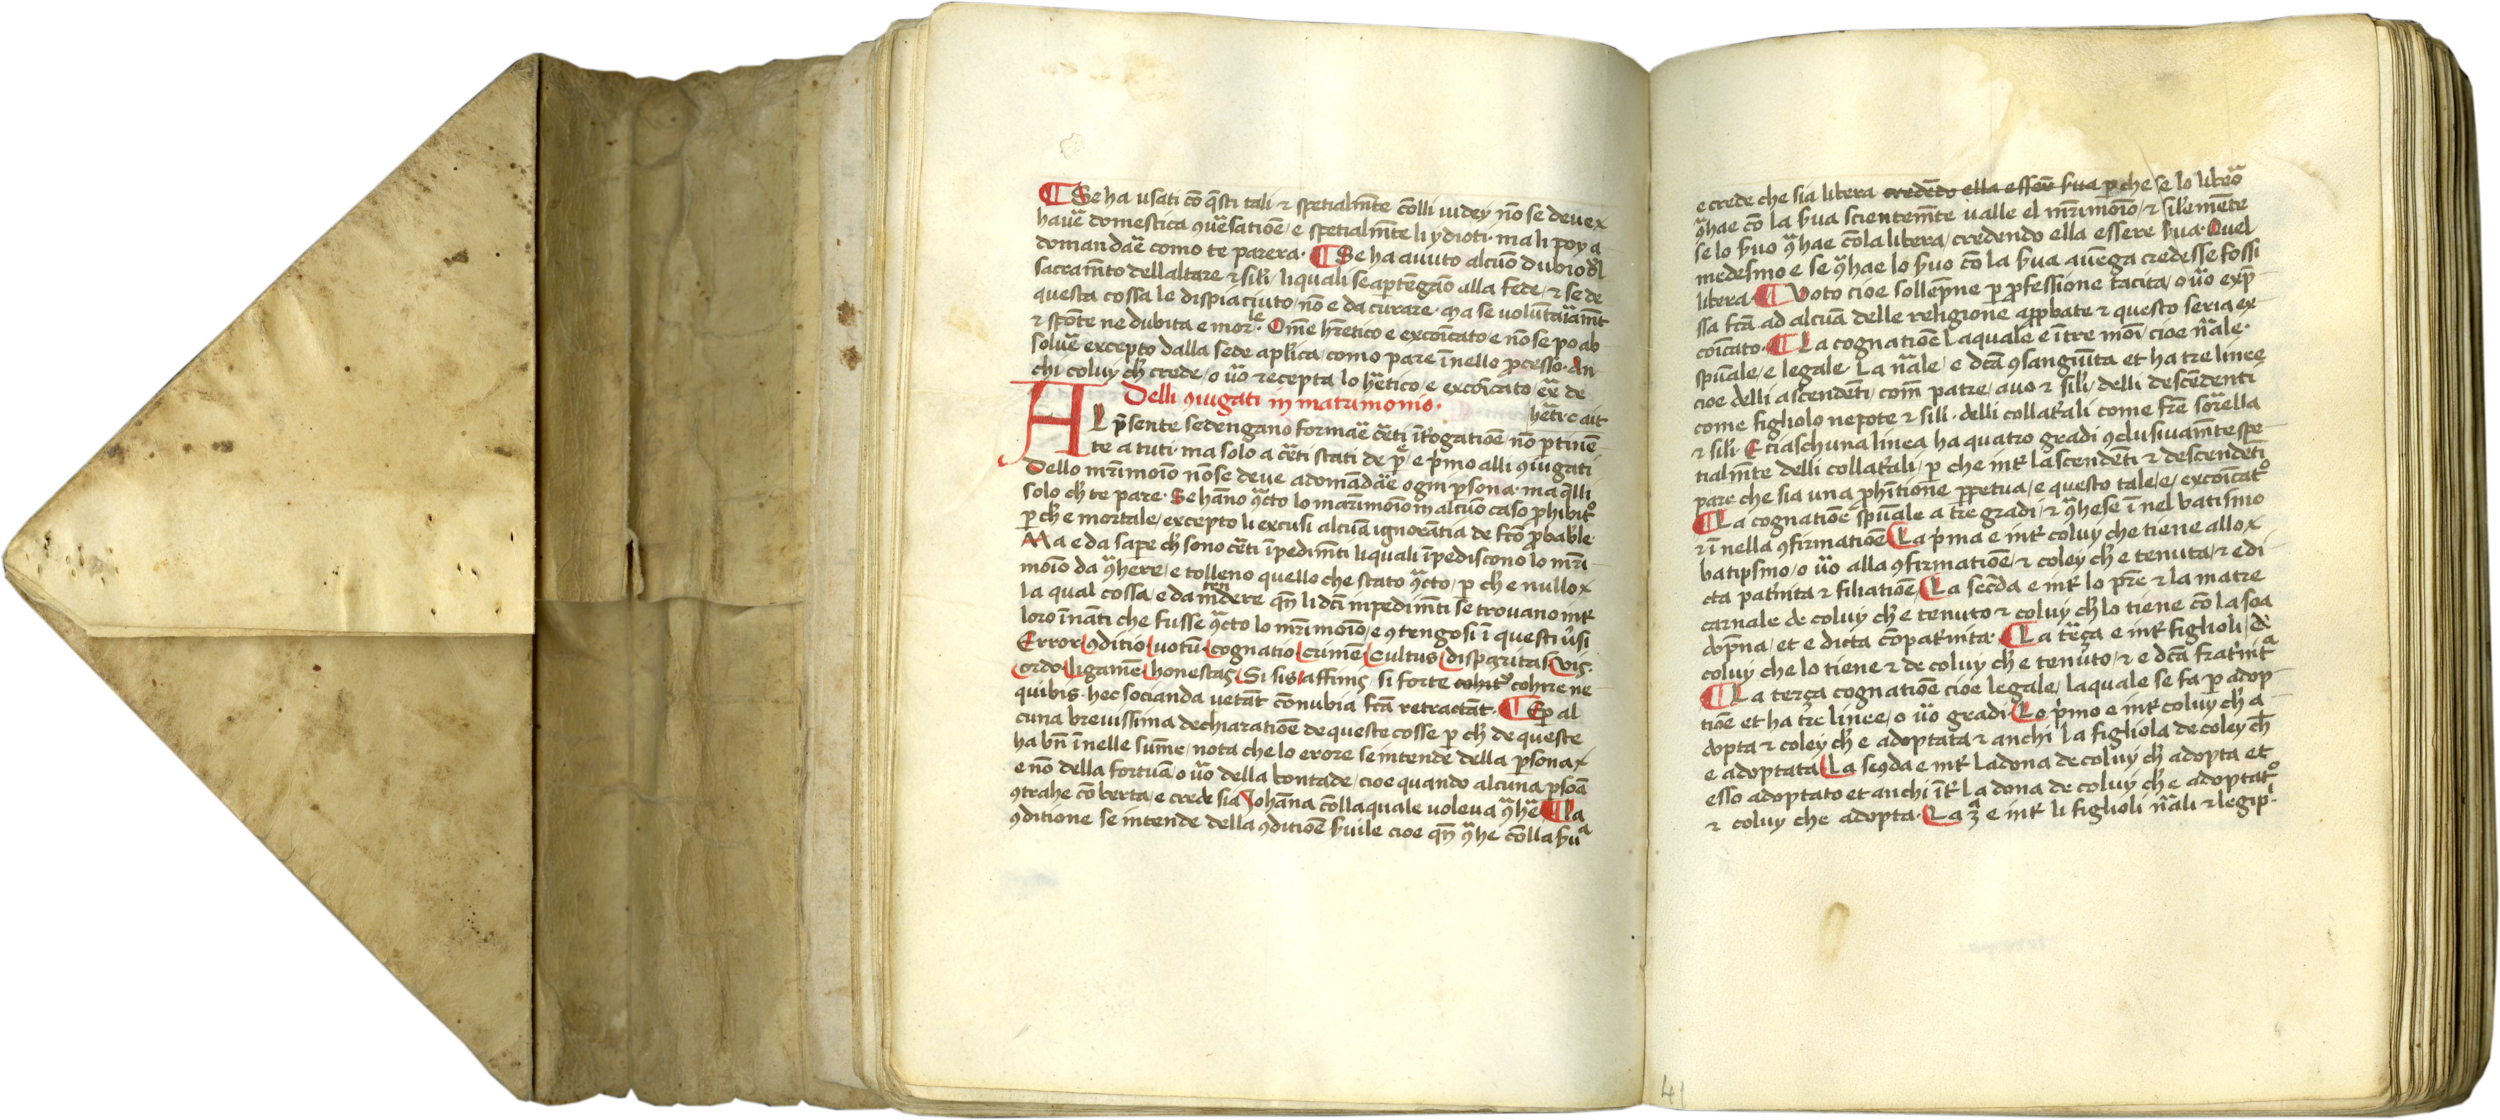 ¶ Se ha usati cō q̄sti tali ⁊ spetialm̄te cōlli iudey nō se deue x
hauē domestica ꝯuēsatiōe / e spetialm̄te li ydioti · ma li poy a
domandaē como te parera · ¶ Se ha auuto alcūo dubio dl̄
sacram̄to dellaltare ⁊ sili / li quali se aptēgāo alla fede / ⁊ se de
questa cossa le dispiaciuto / nō e da curare · ma se voluntaiam̄t
⁊ spōte ne dubita e mor le · Om̄e hr̄etico e excōicato / e nō se po ab
solue excepto dalla sede aplica / como pare ī nello pcesso · An
chi coluy ch̄ crede / o ūo recepta lo hr̄etico / e excōicato / ex̄ de
Delli ꝯiugati in matrimonio · heti · c ait
AL p̄sente se dengano formaē cēti īrogatiōe nō ptinē
te a tuti · ma solo a cēti stati de p̄e / e p̄mo alli ꝯiugati
Dello mr̄imoīo nō se deue adomādaē ogni psona · ma q̄lli
solo ch̄ te pare · Se hāno ꝯ̄cto lo mar̄imōio in alcūo caso phibit᷒
p ch̄ e mortale / excepto li excusi alcūa ignorātia de fc̄o pbable ·
Ma e da sape ch̄ sono cēti īpedim̄ti li quali īpediscono lo mr̄i
moīo da ꝯ̄here / e tolleno quello che stato ꝯ̄cto / p ch̄ e nullo x
la qual cossa / e da intendere qn̄ li dc̄i inpedim̄ti se trouano int̄
loro īnāti che fusse ꝯ̄cto lo mr̄imoīo / e ꝯtengosi ī questi ūsi
Error / ꝯditio / uotū / cognatio / crimē / Cultus / disparitas / vis ·
ordo / ligamē / honestas / Si sis affinis / si forte cohit᷒ cohire ne
quibis · hec socianda uetāt cōnubia fc̄a retractāt · ¶ Ep al
cuna breuissima dechiaratiōe de queste cosse p ch̄ de queste
ha bn̄ ī nelle sum̄e / nota che lo erore se intende della psona x
e nō della fortūa / o ūo della bontade / cioe quando alcuna psoā
ꝯtrahe cō berta / e crede sia Iohāna cōlla quale uoleua ꝯ̄hē ¶ La
ꝯditione se intende della ꝯditiōe s̄uile cioe qn̄ ꝯ̄he cōlla s̄ua
e crede che sia libera credēdo ella esser̄ s̄ua p che se lo libeō
ꝯ̄hae cō la s̄ua scientem̄te ualle el mr̄imoīo / ⁊ silemēte
se lo s̄uo ꝯ̄hae cōla libera / credendo ella essere s̄ua · Quel
medesmo e se ꝯ̄hae lo s̄uo cō la s̄ua auēga credesse fossi
libera · ¶ Voto cioe sollepne p pfessione tacita / o ūo exp̄
ssa fc̄a ad alcūa delle religione appbate ⁊ questo seria ex
coīcato · ¶ La cognatiōe laquale e ī tre mōi / cioe nāle ·
spūale / e legale · La nāle / e dc̄a ꝯsanguīta et ha tre linee
cioe delli ascendēti / com̄ patre / auo ⁊ sili / delli descēdenti
come figliolo nepote ⁊ sili · delli collat̄ali come fr̄e sorella
⁊ sili · E ciaschuna linea ha quatro gradi ꝯclusiuam̄te spe
tialm̄te delli collat̄ali / p che int̄ lascendēti ⁊ descendēti
pare che sia una phitione ppetua / e questo tale / e / excōicat᷒
¶ La cognatiōe spūale a tre gradi / ⁊ ꝯ̄hese ī nel batismo
⁊ ī nella ꝯfirmatiōe La p̄ma e int̄ coluy che tiene allo x
batipsmo / o ūo alla ꝯfirmatiōe / ⁊ coley ch̄ e tenuta / ⁊ e di
cta pat̄nita ⁊ filiatiōe / La secd̄a e int̄ lo pr̄e ⁊ la matre
carnale de coluy ch̄ e tenuto ⁊ coluy ch̄ lo tiene cō la soa
dop̄na / et e dicta cōpat̄nita · La tēça e int̄ figlioli / de
coluy che lo tiene ⁊ de coluy ch̄ e tenuto / ⁊ e dc̄a frat̄nita
¶ La terça cognatiōe cioe legale / laquale se fa p adop
tiōe et ha tre linee / o ūo gradi Lo p̄mo e int̄ coluy ch̄ a
dopta ⁊ coley ch̄ e adoptata ⁊ anchi la figliola de coley ch̄
e adoptata La seꝯda e int̄ ladona de coluy ch̄ adopta et
esso adoptato et anchi īt̄ la dona de coluy ch̄ e adoptat᷒
⁊ coluy che adopta · La 3ᵃ e int̄ li figlioli nāli ⁊ legip̄ ·
41